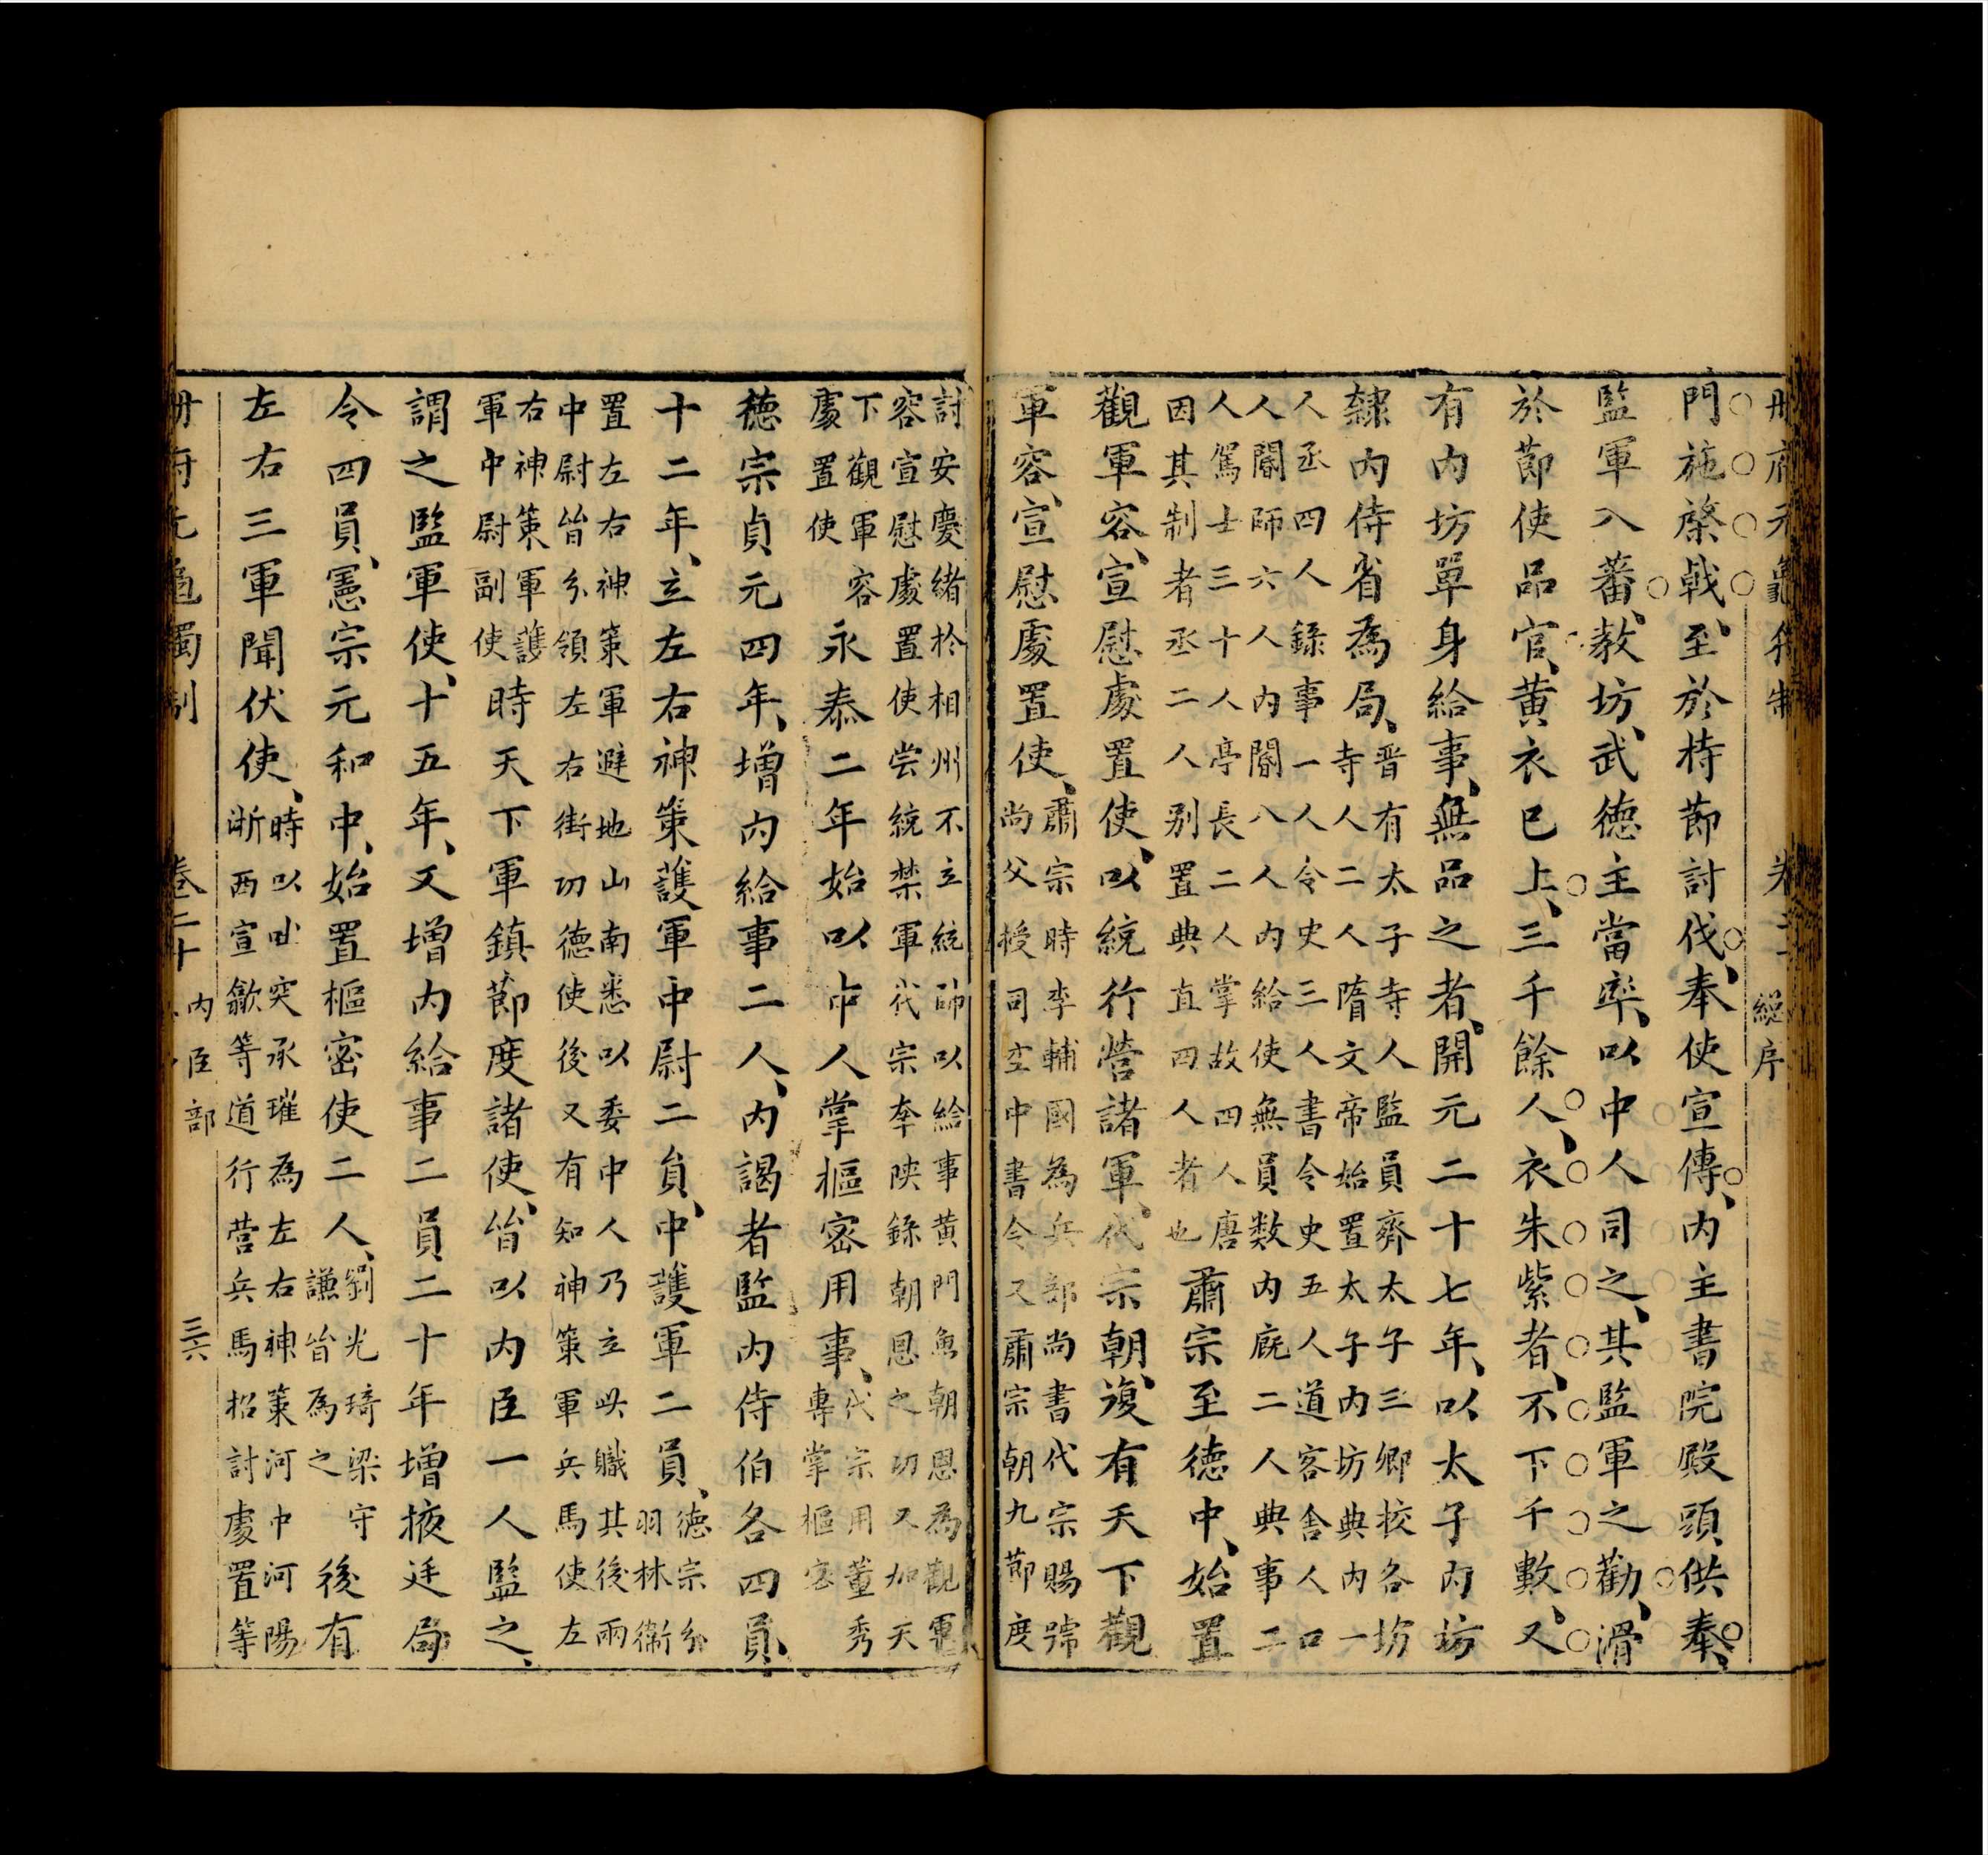 總序
門施棨戟、至於持節討伐、奉使宣傳、内主書院殿頭供奉、
監軍入蕃、教坊、武德主當率、以中人司之、其監軍之勸、滑
於節使品官、黄衣已上、三千餘人、衣朱紫者、不下千數、又
有内坊單身給事、無品之者、開元二十七年、以太子内坊
隸内侍省為局、晋有太子寺人監員齊太子三卿校各坊
寺人二人隋文帝始置太子内坊典内一
人丞四人錄事一人令史三人書令史五人道客舍人口
人閽師六人内閽八人内給使無員数内廐二人典事二
人駕士三十人亭長二人掌故四人唐
因其制者丞二人别置典直四人者也肅宗至德中、始置
觀軍容、宣慰處置使、以統行營諸軍、代宗朝、複有天下觀
軍容、宣慰處置使、肅宗時李輔國為兵部尚書代宗賜號
尚父授司空中書令又肅宗朝九節度
討安慶緒於相州不立統帥以給事黄門魚朝恩為觀軍
容宣慰處置使尝統禁軍代宗李陝錄朝恩之功又加天
下觀軍容
處置使永泰二年始以中人掌樞密用事、代宗用董秀
專掌樞密
德宗貞元四年、增内給事二人、内謁者監内侍伯各四員、
十二年、立左右神策護軍中尉二員、中護軍二員、德宗分
羽林衛
置左右神策軍避地山南悉以委中人乃立此職其後兩
中尉皆分領左右街功德使後又有知神策軍兵馬使左
右神策軍護
軍中尉副使時天下軍鎮節度諸使、皆以内臣一人監之、
謂之監軍使、十五年、又增内給事二員二十年增掖廷局
令四員、憲宗元和中、始置樞密使二人、劉光琦梁守
謙皆為之後有
左右三軍聞伏使、時以吐突承璀為左右神策河中河陽
浙西宣歙等道行營兵馬招討處置等
冊府元龜獨制 卷二十 内臣部 三六